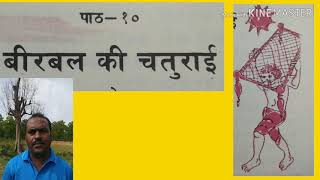 पाठ-१०
बीरबल की चतुराई
KINEMASTER